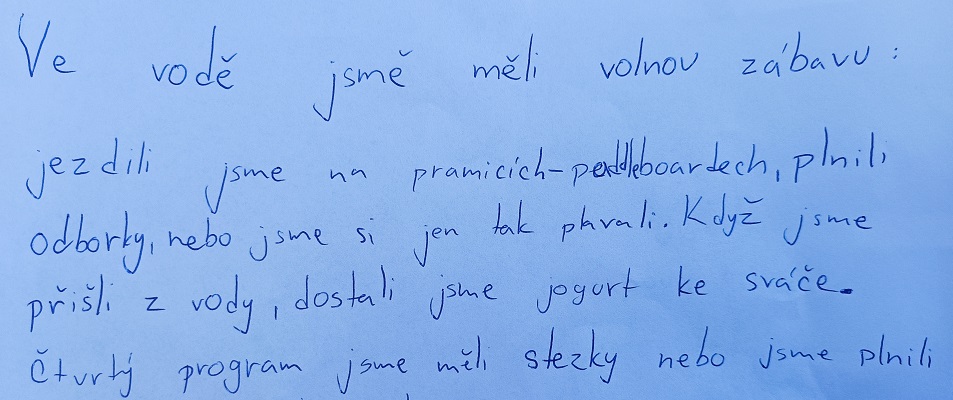 Ve vodě jsmě měli volnou zábavu:
jezdili jsme na pramicích-peddleboardech, plnili
odborky, nebo jsme si jen tak plavali. Když jsme
přišli z vody, dostali jsme jogurt ke sváče.
Čtvrtý program jsme měli stezky nebo jsme plnili